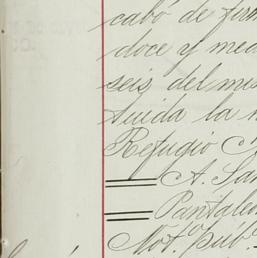 cabó de fir
doce y med
seis del mis
tuida la n
Refugio C
A. San
Pantale
Not. Púb.